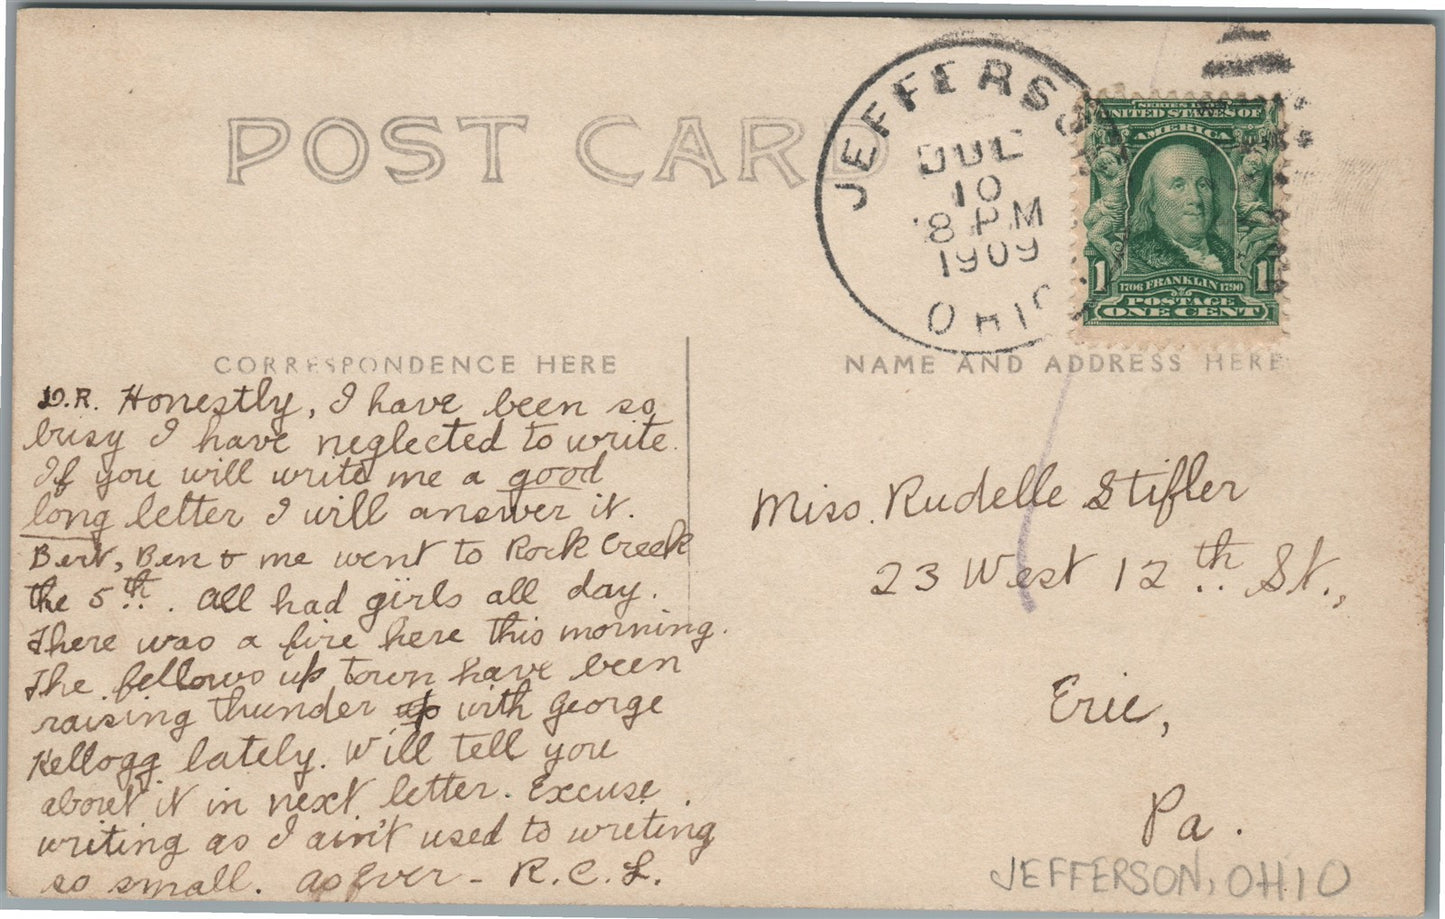 POST CARD
JEFFERSON
JUL
10
8 PM
1909
OHIO
SERIES 1902
UNITED STATES OF
AMERICA
1 1
1706 FRANKLIN 1790
POSTAGE
ONE CENT
CORRESPONDENCE HERE
D.R. Honestly, I have been so
busy I have neglected to write.
If you will write me a good
long letter I will answer it.
Bert, Ben & me went to Rock Creek
the 5th. All had girls all day.
There was a fire here this morning.
The fellows up town have been
raising thunder up with George
Kellogg lately. Will tell you
about it in next letter. Excuse
writing as I ain't used to writing
so small. As Ever - R.C.L.
NAME AND ADDRESS HERE
Miss. Rudelle Stifler
23 West 12th St.,
Erie,
Pa.
JEFFERSON, OHIO